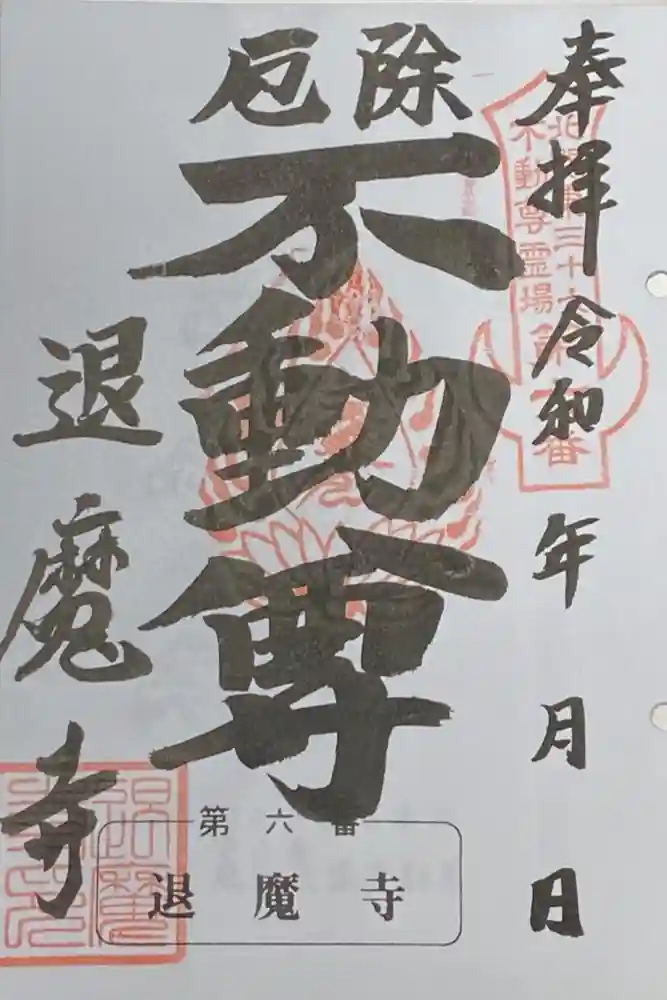 奉拝 令和 年 月 日
北関東三十六
不動尊霊場第六番
除厄
不動尊
退魔寺
第六番
退魔寺